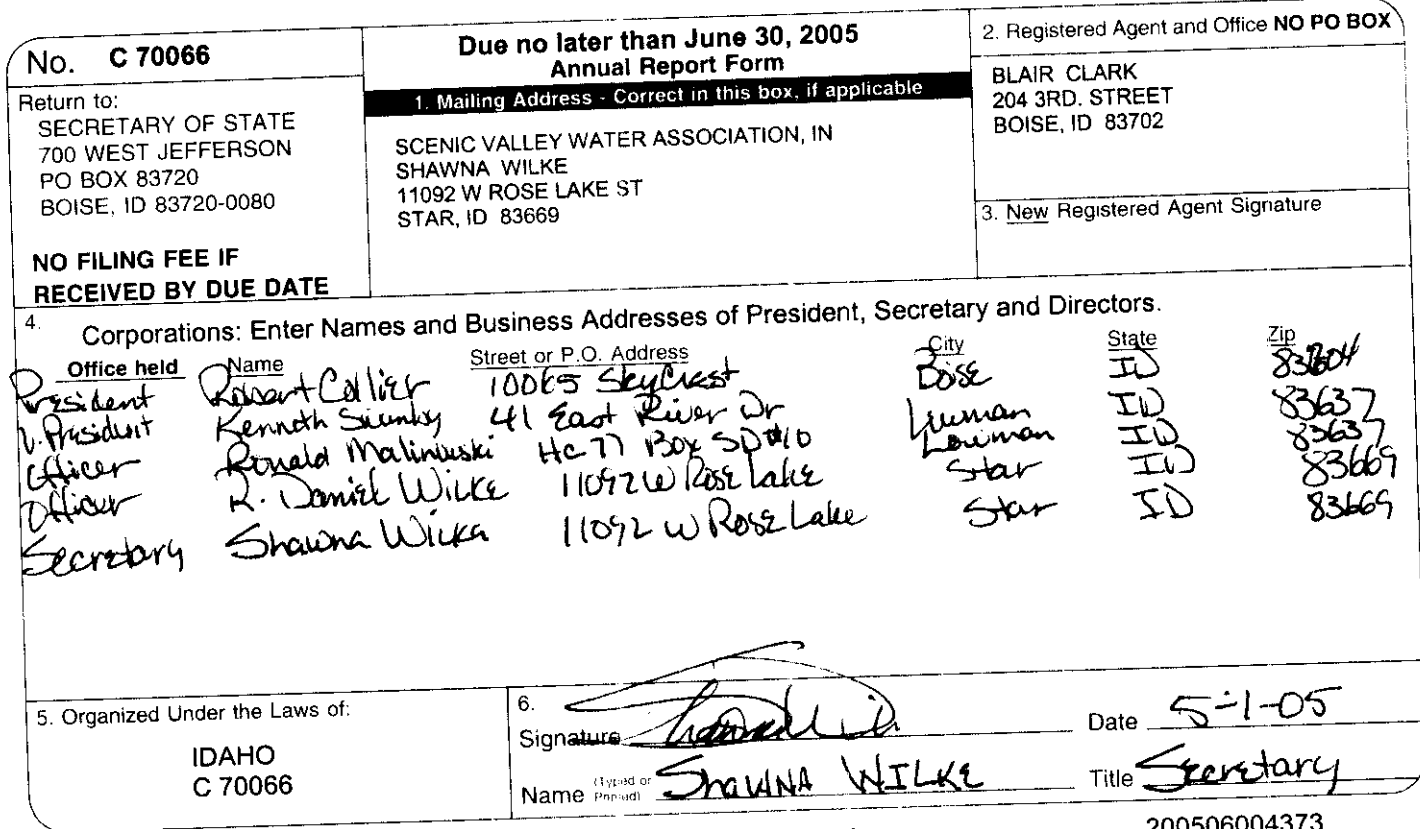 No. C 70066
Return to:
SECRETARY OF STATE
700 WEST JEFFERSON
PO BOX 83720
BOISE, ID 83720-0080
NO FILING FEE IF
RECEIVED BY DUE DATE
Due no later than June 30, 2005
Annual Report Form
1. Mailing Address - Correct in this box, if applicable
SCENIC VALLEY WATER ASSOCIATION, IN
SHAWNA WILKE
11092 W ROSE LAKE ST
STAR, ID 83669
2. Registered Agent and Office NO PO BOX
BLAIR CLARK
204 3RD. STREET
BOISE, ID 83702
3. New Registered Agent Signature
4. Corporations: Enter Names and Business Addresses of President, Secretary and Directors.
Office held Name Street or P.O. Address City State Zip
President Robert Collier 10065 SkyCrest Boise ID
V. President Kenneth 41 East River Dr Lowman ID 83637
Officer Ronald Malinuski HC 77 Box SD#10 Lowman ID 83637
Officer R. Daniel Wilke 11092 W Rose Lake Star ID 83669
Secretary Shawna Wilke 11092 W Rose Lake Star ID 83669
5. Organized Under the Laws of:
IDAHO
C 70066
6.
Signature Date 5-1-05
Name (Typed or Printed) ShawNA WILKE Title Secretary
200506004373